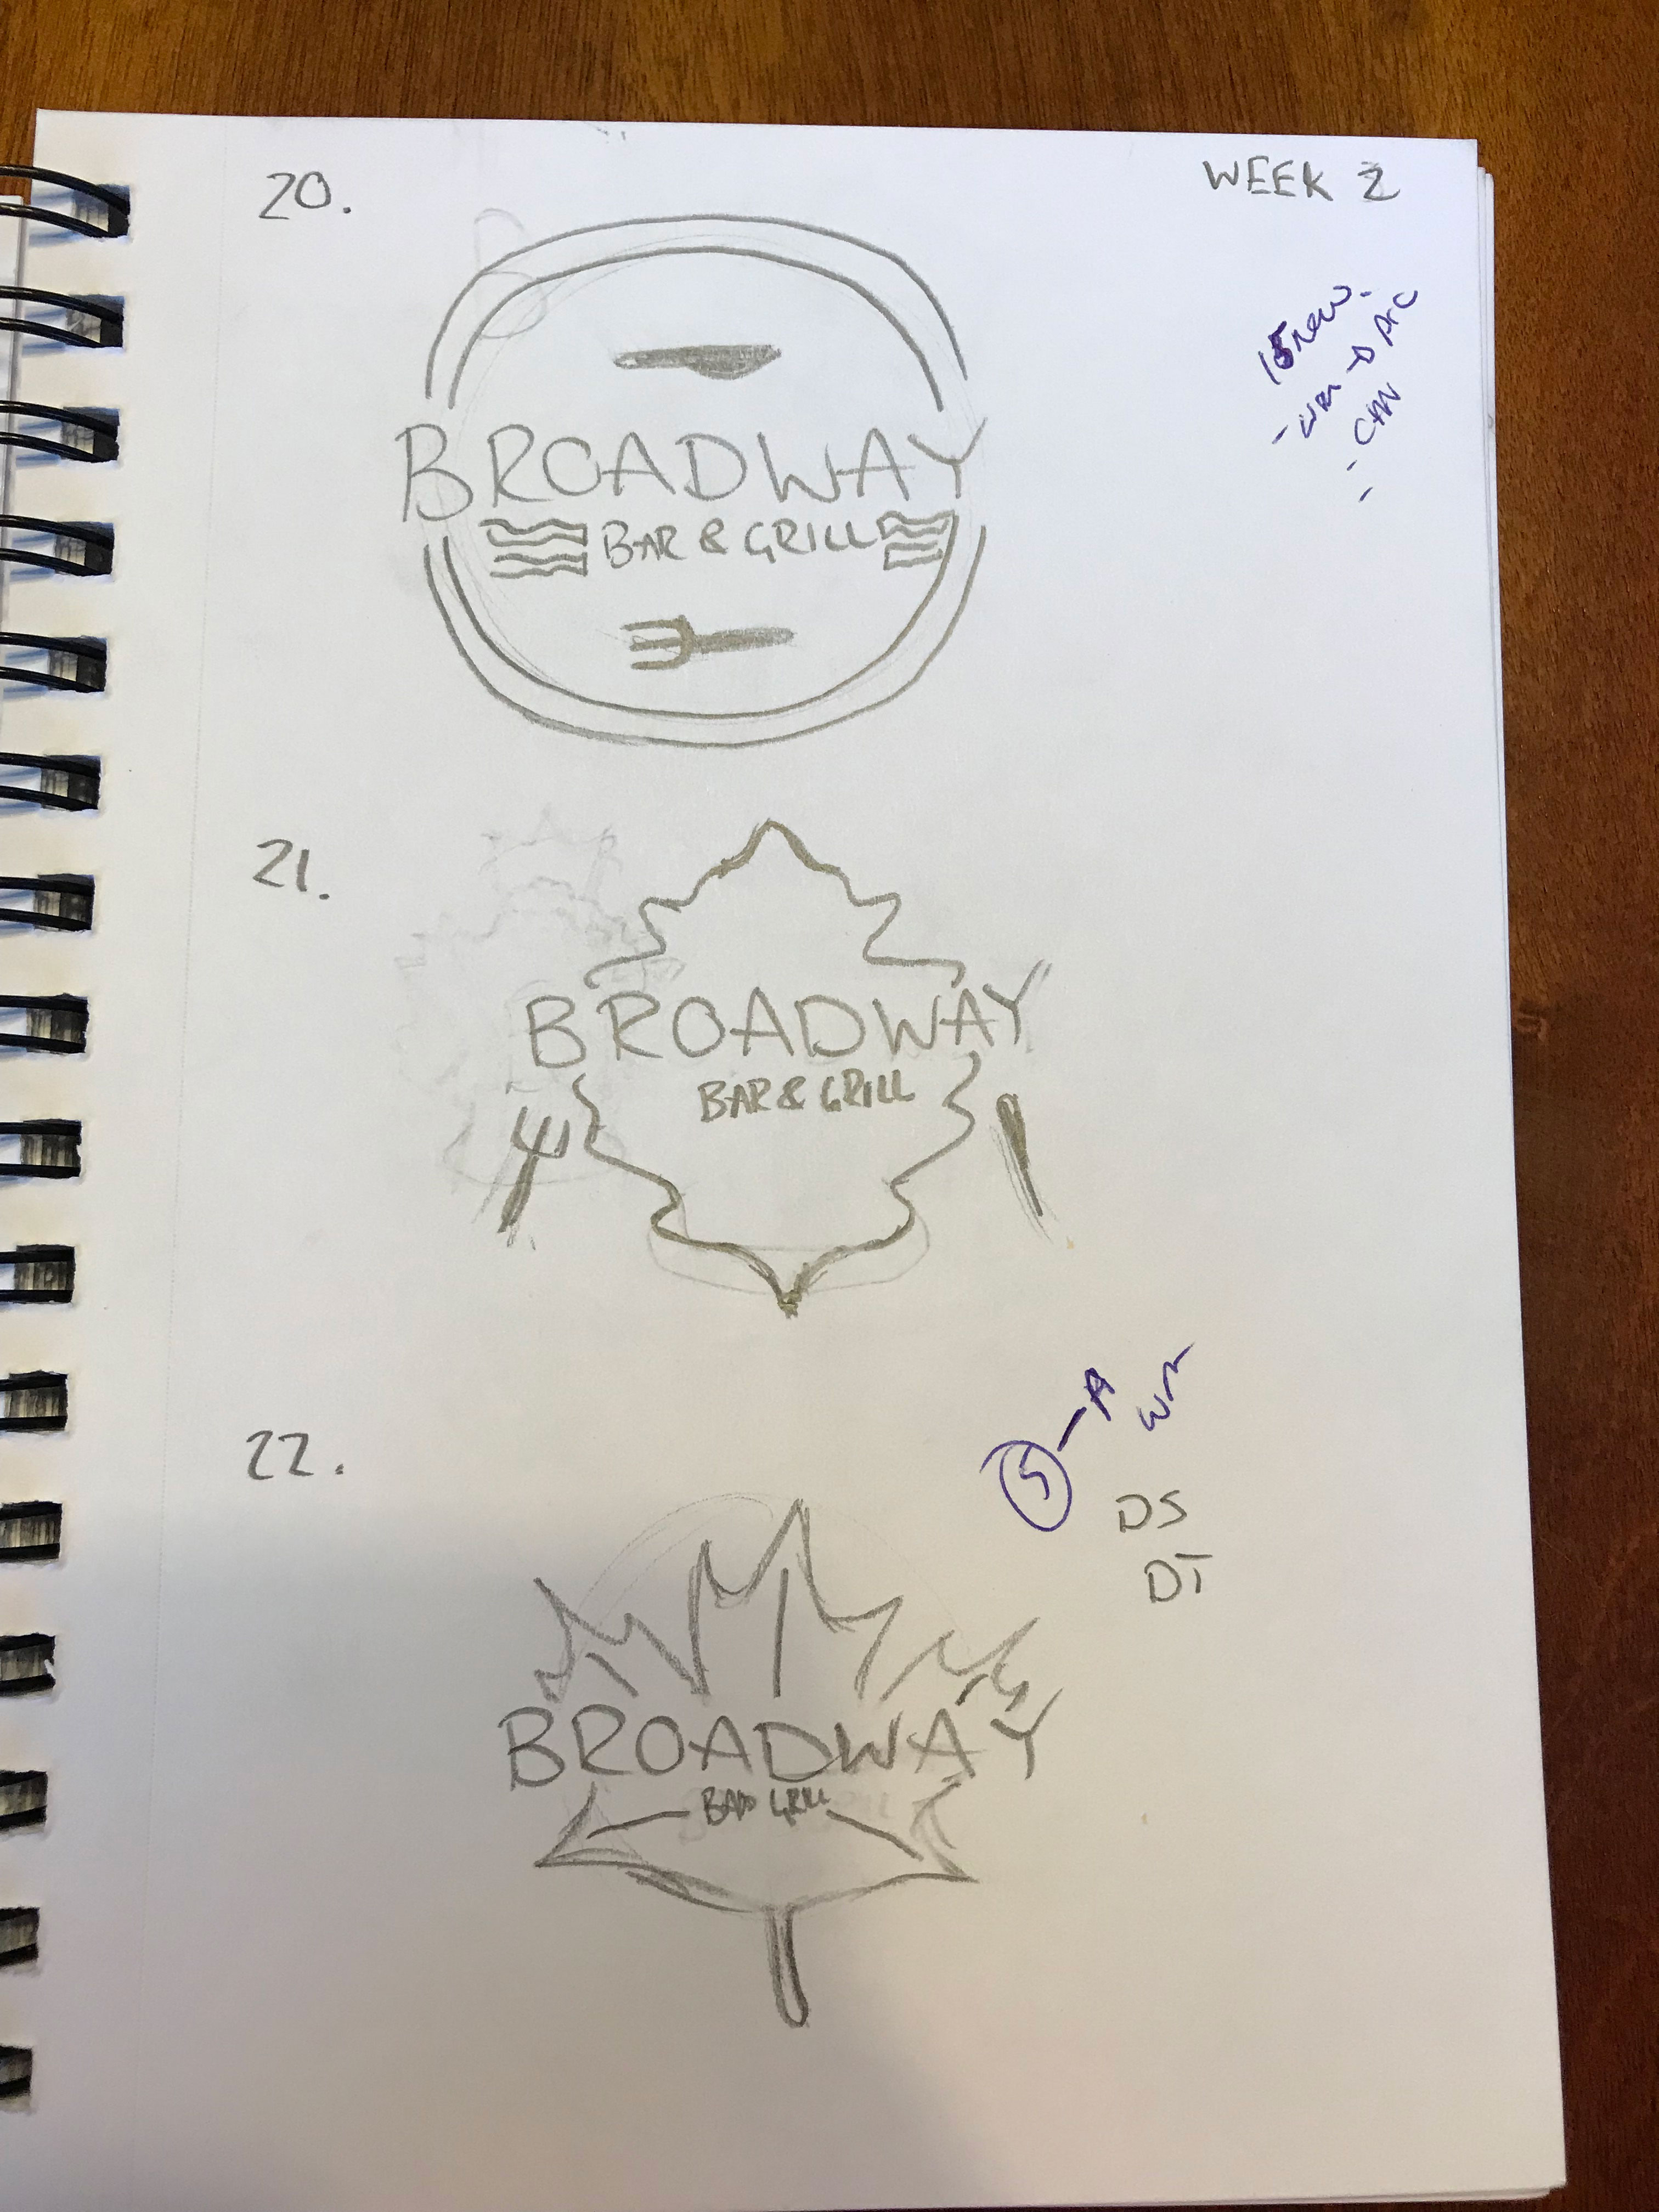 20.
WEEK 2
BROADWAY
BAR & GRILL
21.
BROADWAY
BAR & GRILL
22.
DS
DT
BROADWAY
GRILL